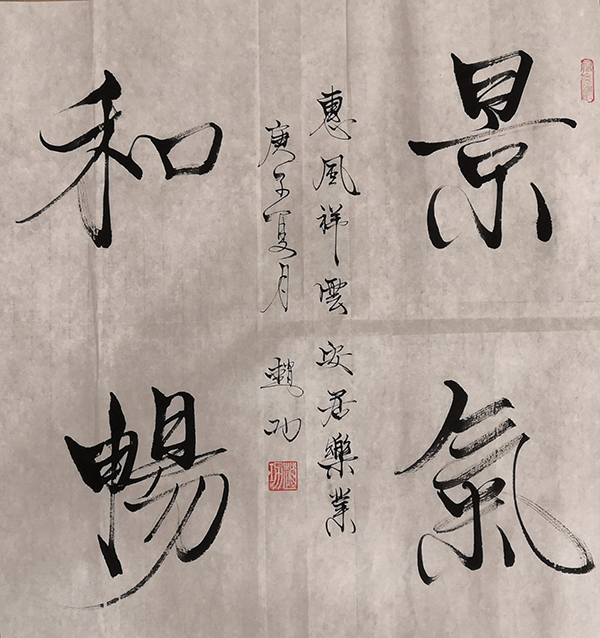 景氣
和暢
惠風祥雲安居樂業
庚子夏月 趙功